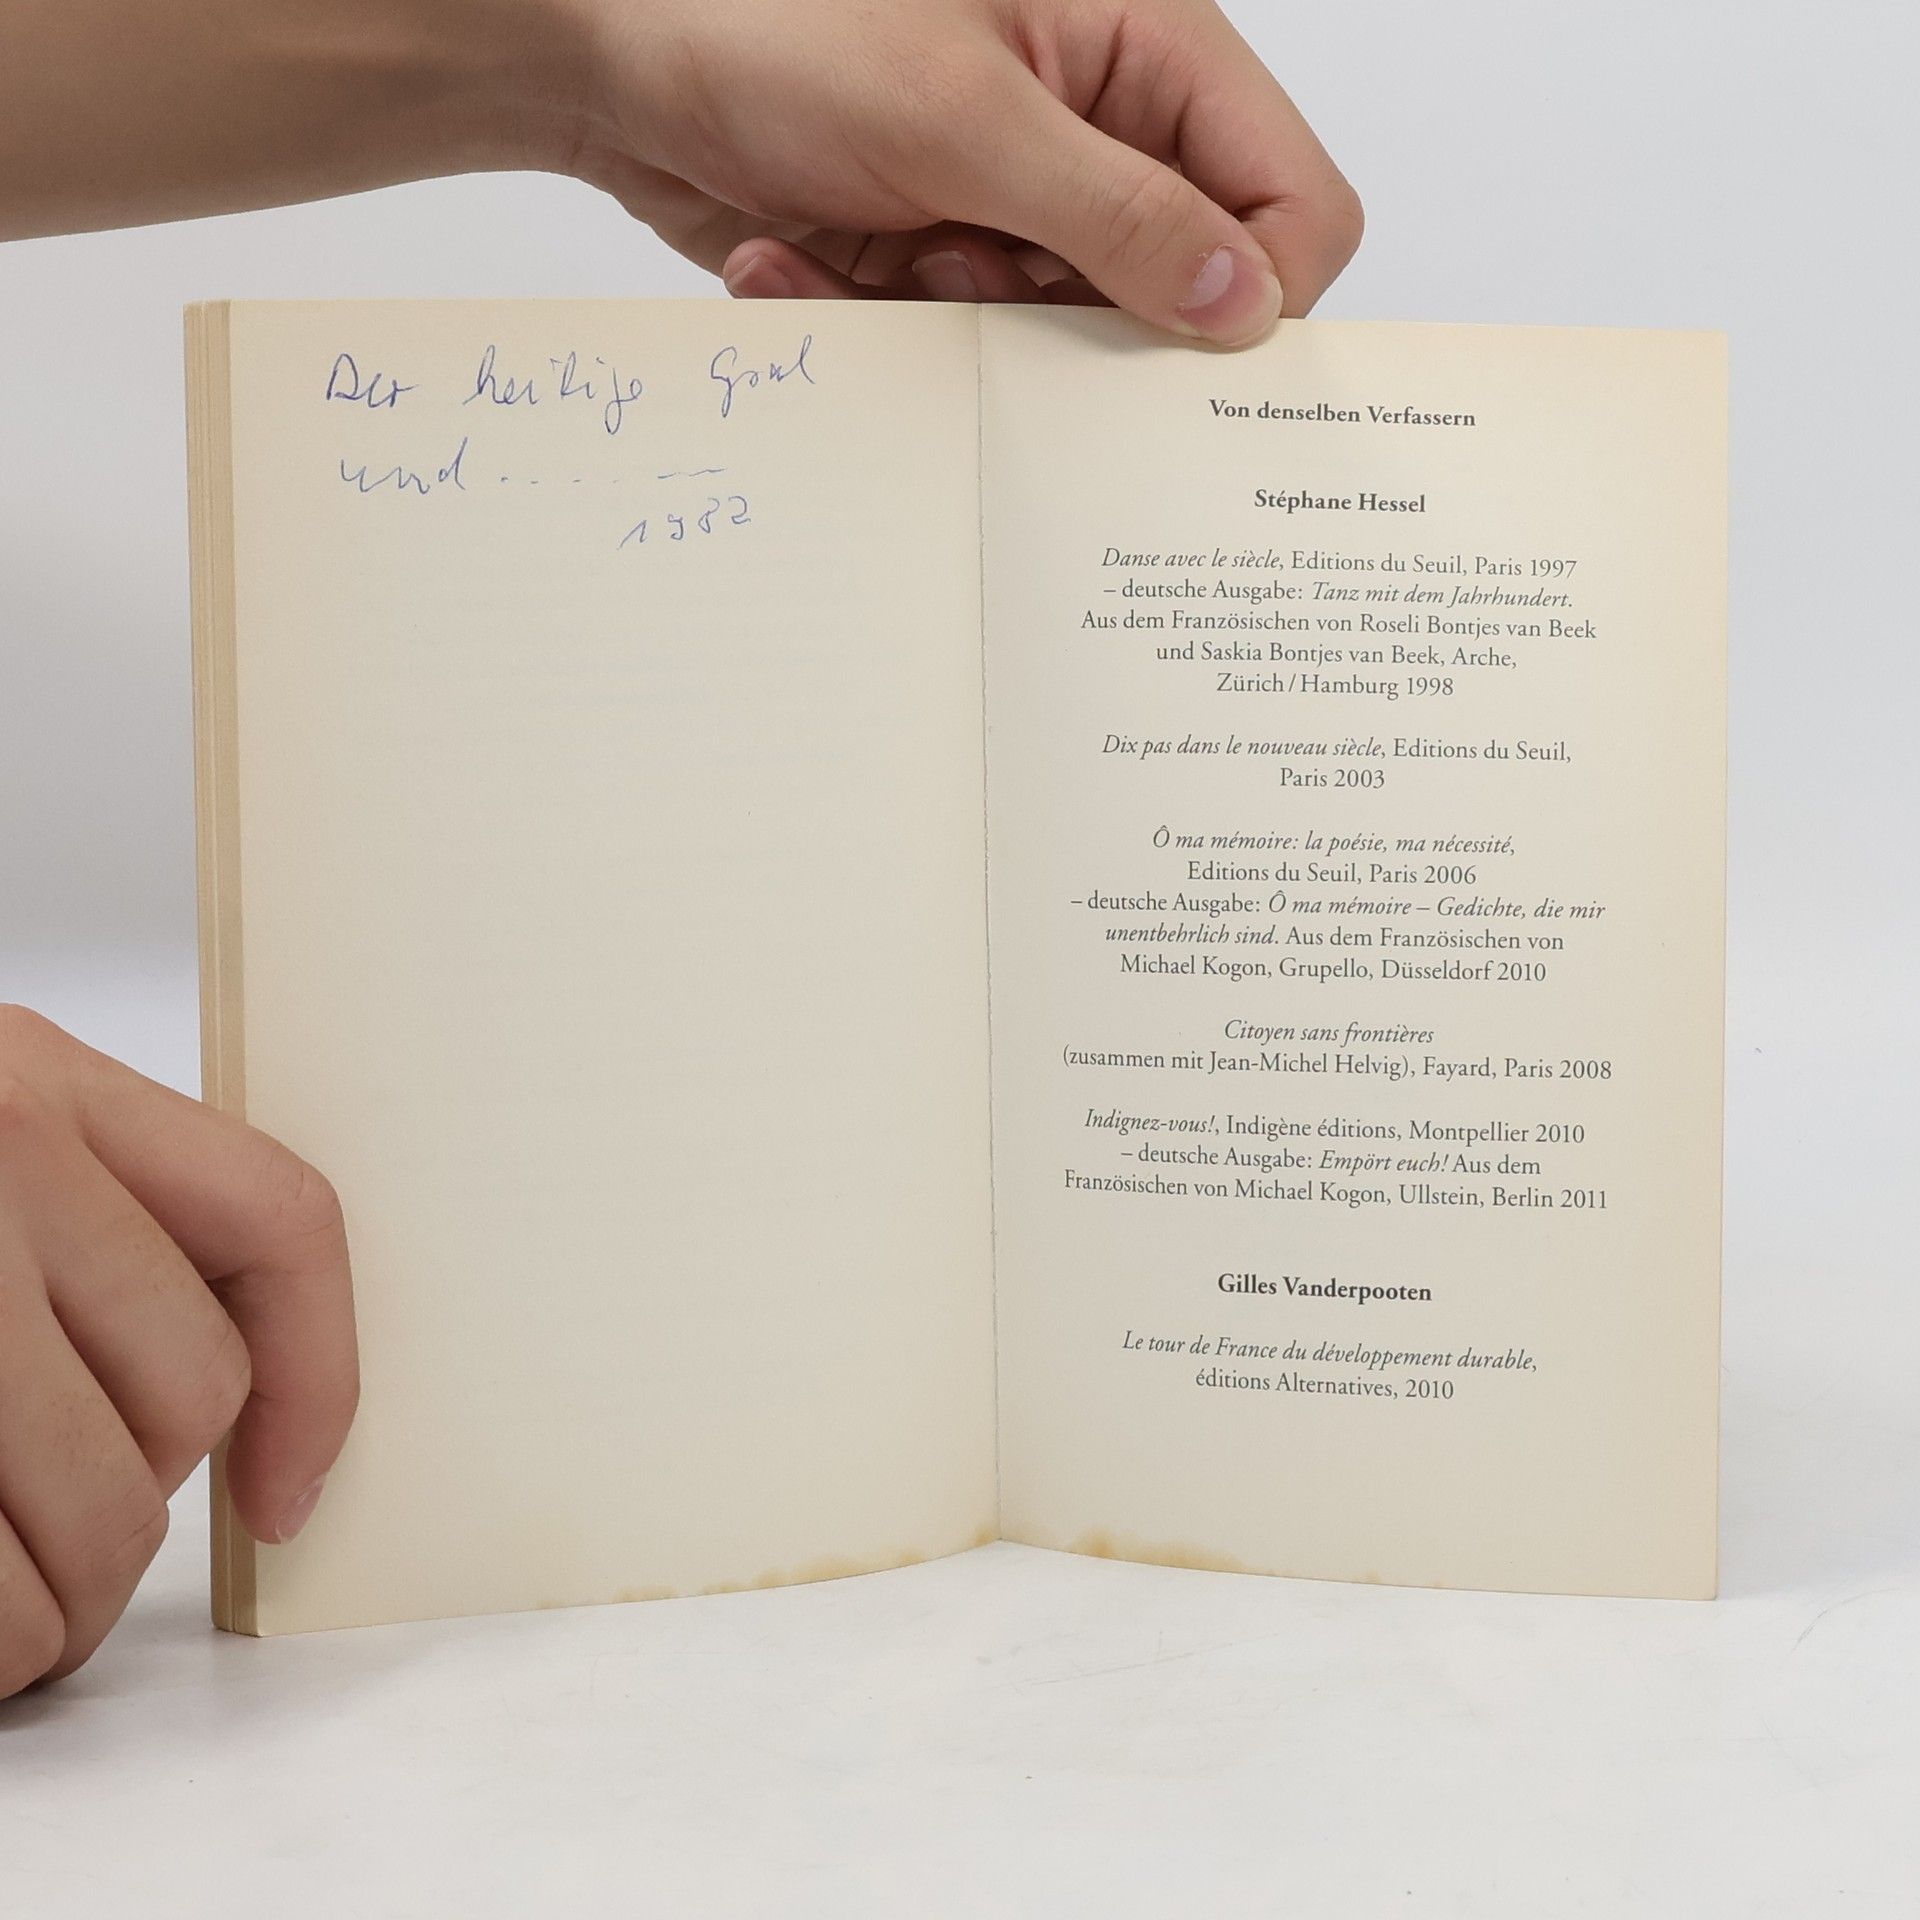 Der heilige Gral
und ..... —
1982
Von denselben Verfassern
Stéphane Hessel
Danse avec le siècle, Editions du Seuil, Paris 1997
– deutsche Ausgabe: Tanz mit dem Jahrhundert.
Aus dem Französischen von Roseli Bontjes van Beek
und Saskia Bontjes van Beek, Arche,
Zürich / Hamburg 1998
Dix pas dans le nouveau siècle, Editions du Seuil,
Paris 2003
Ô ma mémoire: la poésie, ma nécessité,
Editions du Seuil, Paris 2006
– deutsche Ausgabe: Ô ma mémoire – Gedichte, die mir
unentbehrlich sind. Aus dem Französischen von
Michael Kogon, Grupello, Düsseldorf 2010
Citoyen sans frontières
(zusammen mit Jean-Michel Helvig), Fayard, Paris 2008
Indignez-vous!, Indigène éditions, Montpellier 2010
– deutsche Ausgabe: Empört euch! Aus dem
Französischen von Michael Kogon, Ullstein, Berlin 2011
Gilles Vanderpooten
Le tour de France du développement durable,
éditions Alternatives, 2010